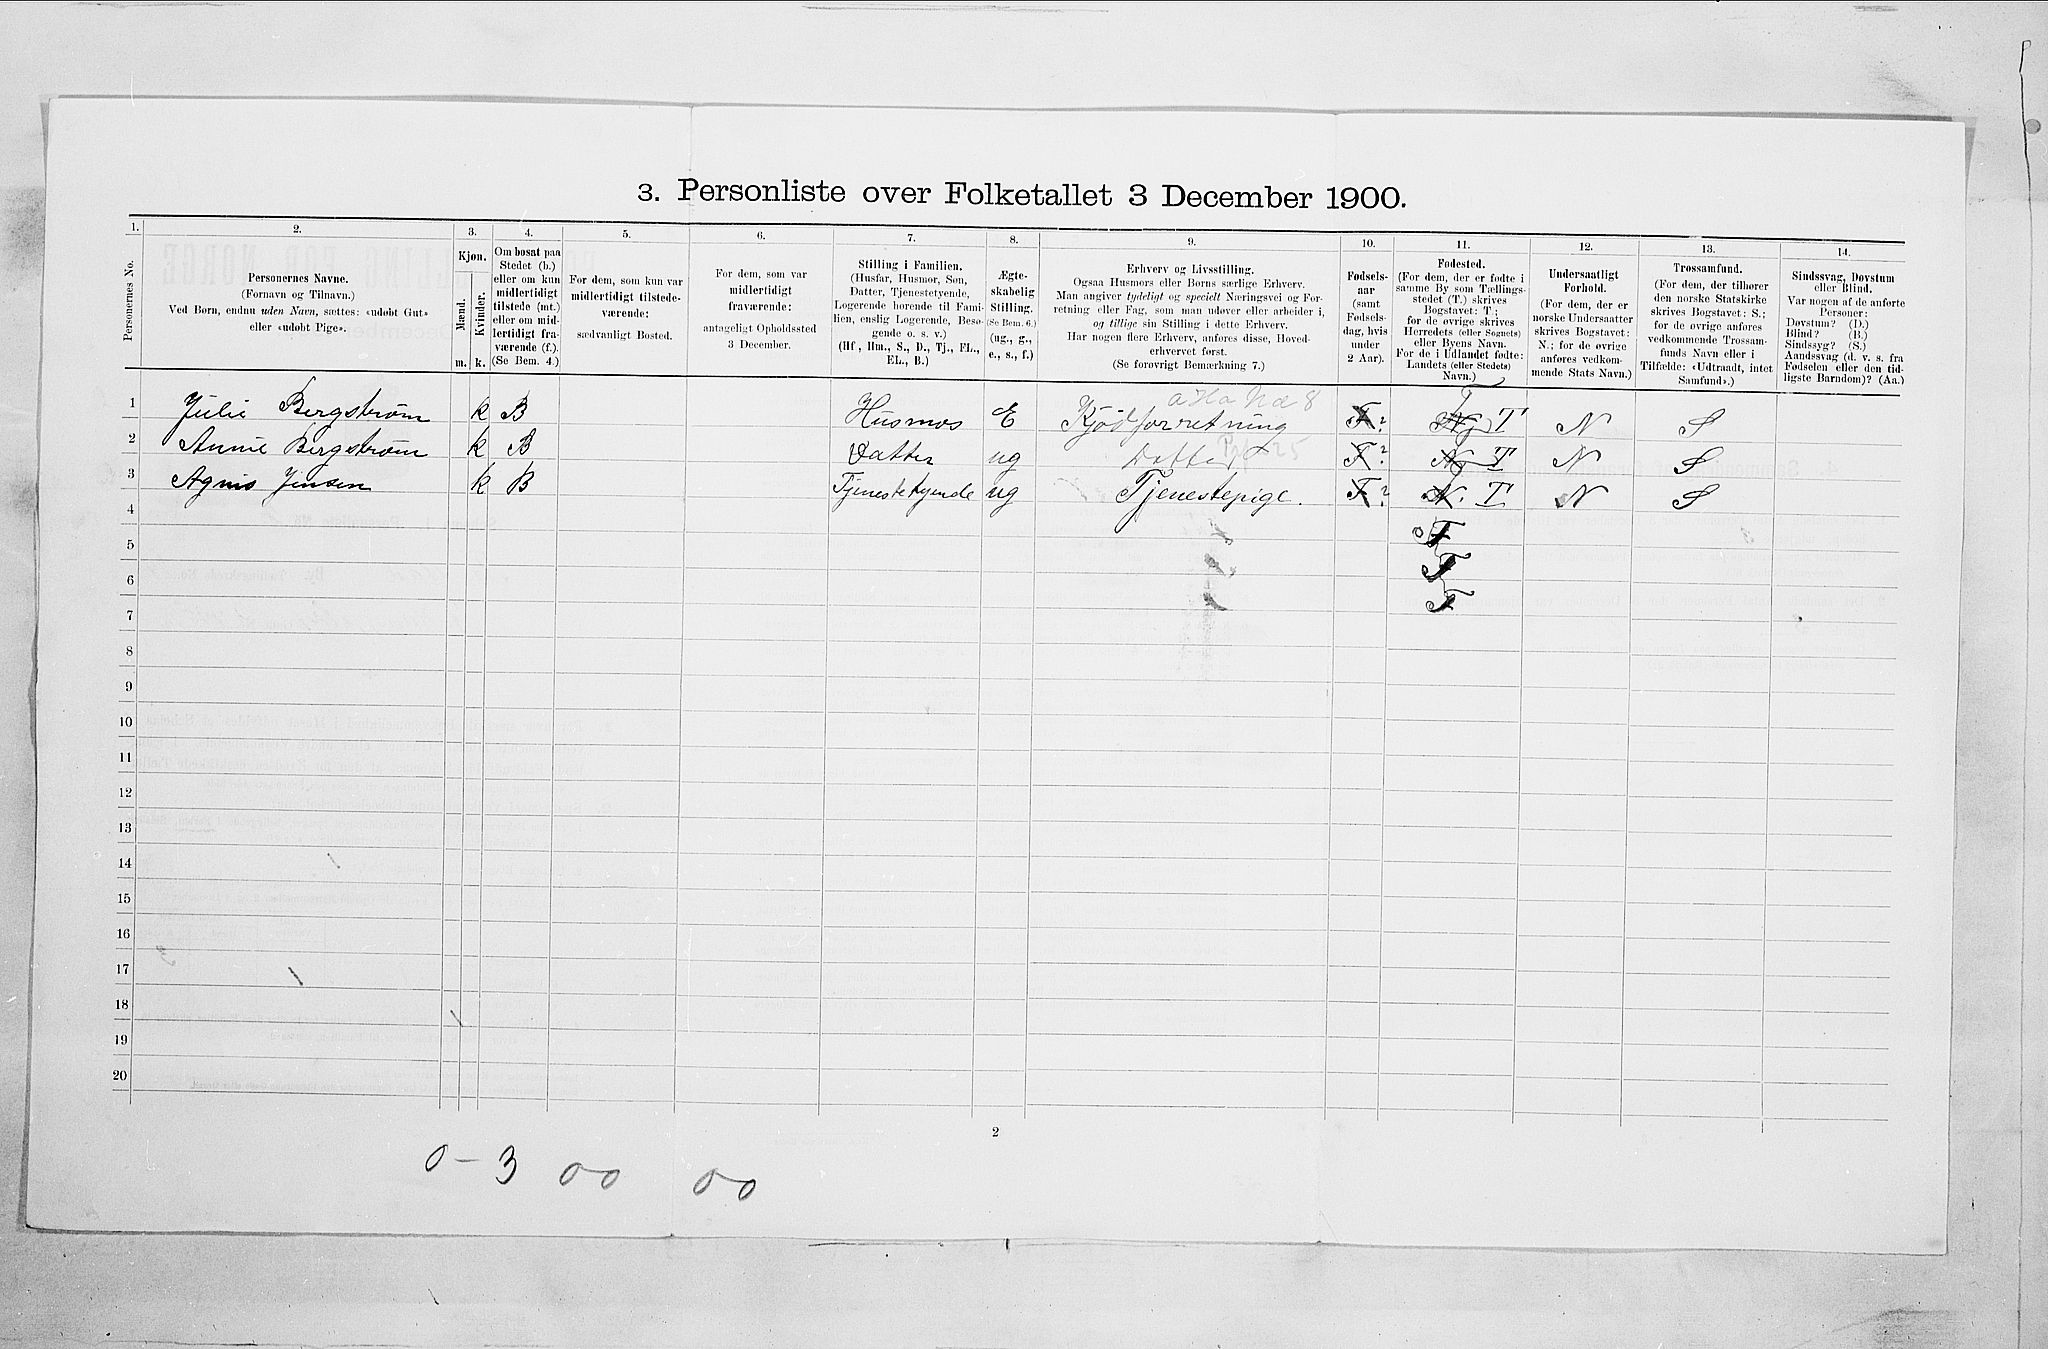 3. Personliste over Folketallet 3 December 1900.
1. 2. 3. 4. 5. 6. 7. 8. 9. 10. 11. 12. 13. 14.
Personernes No.
Personernes Navne.
(Fornavn og Tilnavn.)
Ved Børn, endnu uden Navn, sættes: «udøbt Gut»
eller «udøbt Pige».
Kjøn.
Mænd.
Kvinder.
m. k.
Om bosat paa
Stedet (b.)
eller om kun
midlertidigt
tilstede (mt.)
eller om mid-
lertidigt fra-
værende (f.).
(Se Bem. 4.)
For dem, som kun var
midlertidigt tilstede-
værende:
sædvanligt Bosted.
For dem, som var
midlertidigt
fraværende:
antageligt Opholdssted
3 December.
Stilling i Familien.
(Husfar, Husmor, Søn,
Datter, Tjenestetyende,
Logerende hørende til Fami-
lien, enslig Logerende, Besø-
gende o. s. v.)
(Hf, Hm., S., D., Tj., FL.,
EL., B.)
Ægte-
skabelig
Stilling.
(Se Bem. 6.)
(ug., g.,
e., s., f.)
Erhverv og Livsstilling.
Ogsaa Husmors eller Børns særlige Erhverv.
Man angiver tydeligt og specielt Næringsvei og For-
retning eller Fag, som man udøver eller arbeider i,
og tillige sin Stilling i dette Erhverv.
Har nogen flere Erhverv, anføres disse, Hoved-
erhvervet først.
(Se forøvrigt Bemærkning 7.)
Fødsels-
aar
(samt
Fødsels-
dag, hvis
under
2 Aar).
Fødested.
(For dem, der er fødte i
samme By som Tællings-
stedet (T.) skrives
Bogstavet: T.;
for de øvrige skrives
Herredets (eller Sognets)
eller Byens Navn.
For de i Udlandet fødte:
Landets (eller Stedets)
Navn.)
Undersaatligt
Forhold.
(For dem, der er
norske Undersaatter
skrives Bogstavet:
N.; for de øvrige
anføres vedkom-
mende Stats Navn.)
Trossamfund.
(For dem, der tilhører
den norske Statskirke
skrives Bogstavet: S.;
for de øvrige anføres
vedkommende Trossam-
funds Navn eller i
Tilfælde: «Udtraadt, intet
Samfund».)
Sindssvag, Døvstum
eller Blind.
Var nogen af de anførte
Personer:
Døvstum? (D.)
Blind? (B.)
Sindssyg? (S.)
Aandssvag (d. v. s. fra
Fødselen eller den tid-
ligste Barndom)? (Aa.)
1 Julie Bergstrøm k B Husmor E Kjødforretning F ? T N S
2 Annie Bergstrøm k B Datter ug Datter F ? T N S
3 Agnis Jensen k B Tjenestetyende ug Tjenestepige. F ? N. T N S
4 T
5 T
6 T
7
8
9
10
11
12
13
14
15
16
17
18
19
20
2
0 – 3 00 00